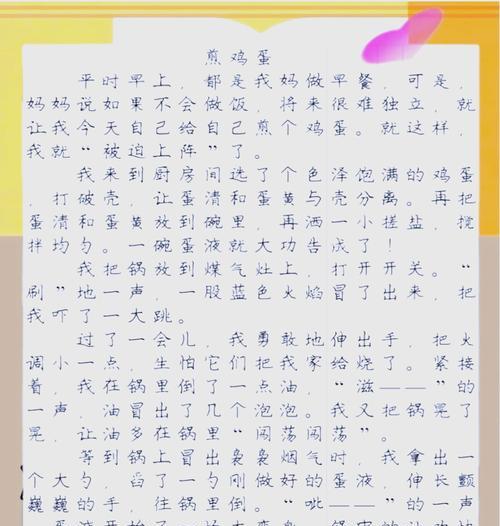 煎鸡蛋
平时早上，都是我妈做早餐，可是，
妈妈说如果不会做饭，将来很难独立，就
让我今天自己给自己煎个鸡蛋。就这样，
我就“被迫上阵”了。
我来到厨房间选了个色泽饱满的鸡蛋
，打破壳，让蛋清和蛋黄与壳分离。再把
蛋清和蛋黄放到碗里，再洒一小搓盐，搅
拌均匀。一碗蛋液就大功告成了！
我把锅放到煤气灶上，打开开关。“
刷”地一声，一股蓝色火焰冒了出来，把
我吓了一大跳。
过了一会儿，我勇敢地伸出手，把火
调小一点，生怕它们把我家给烧了。紧接
着，我在锅里倒了一点油，“滋——”的
一声，油冒出了几个泡泡。我又把锅晃了
晃，让油多在锅里“闯荡闯荡”。
等到锅上冒出袅袅烟气时，我拿出一
个大勺，舀了一勺刚做好的蛋液，伸长颤
巍巍的手，往锅里倒。“呲——”的一声